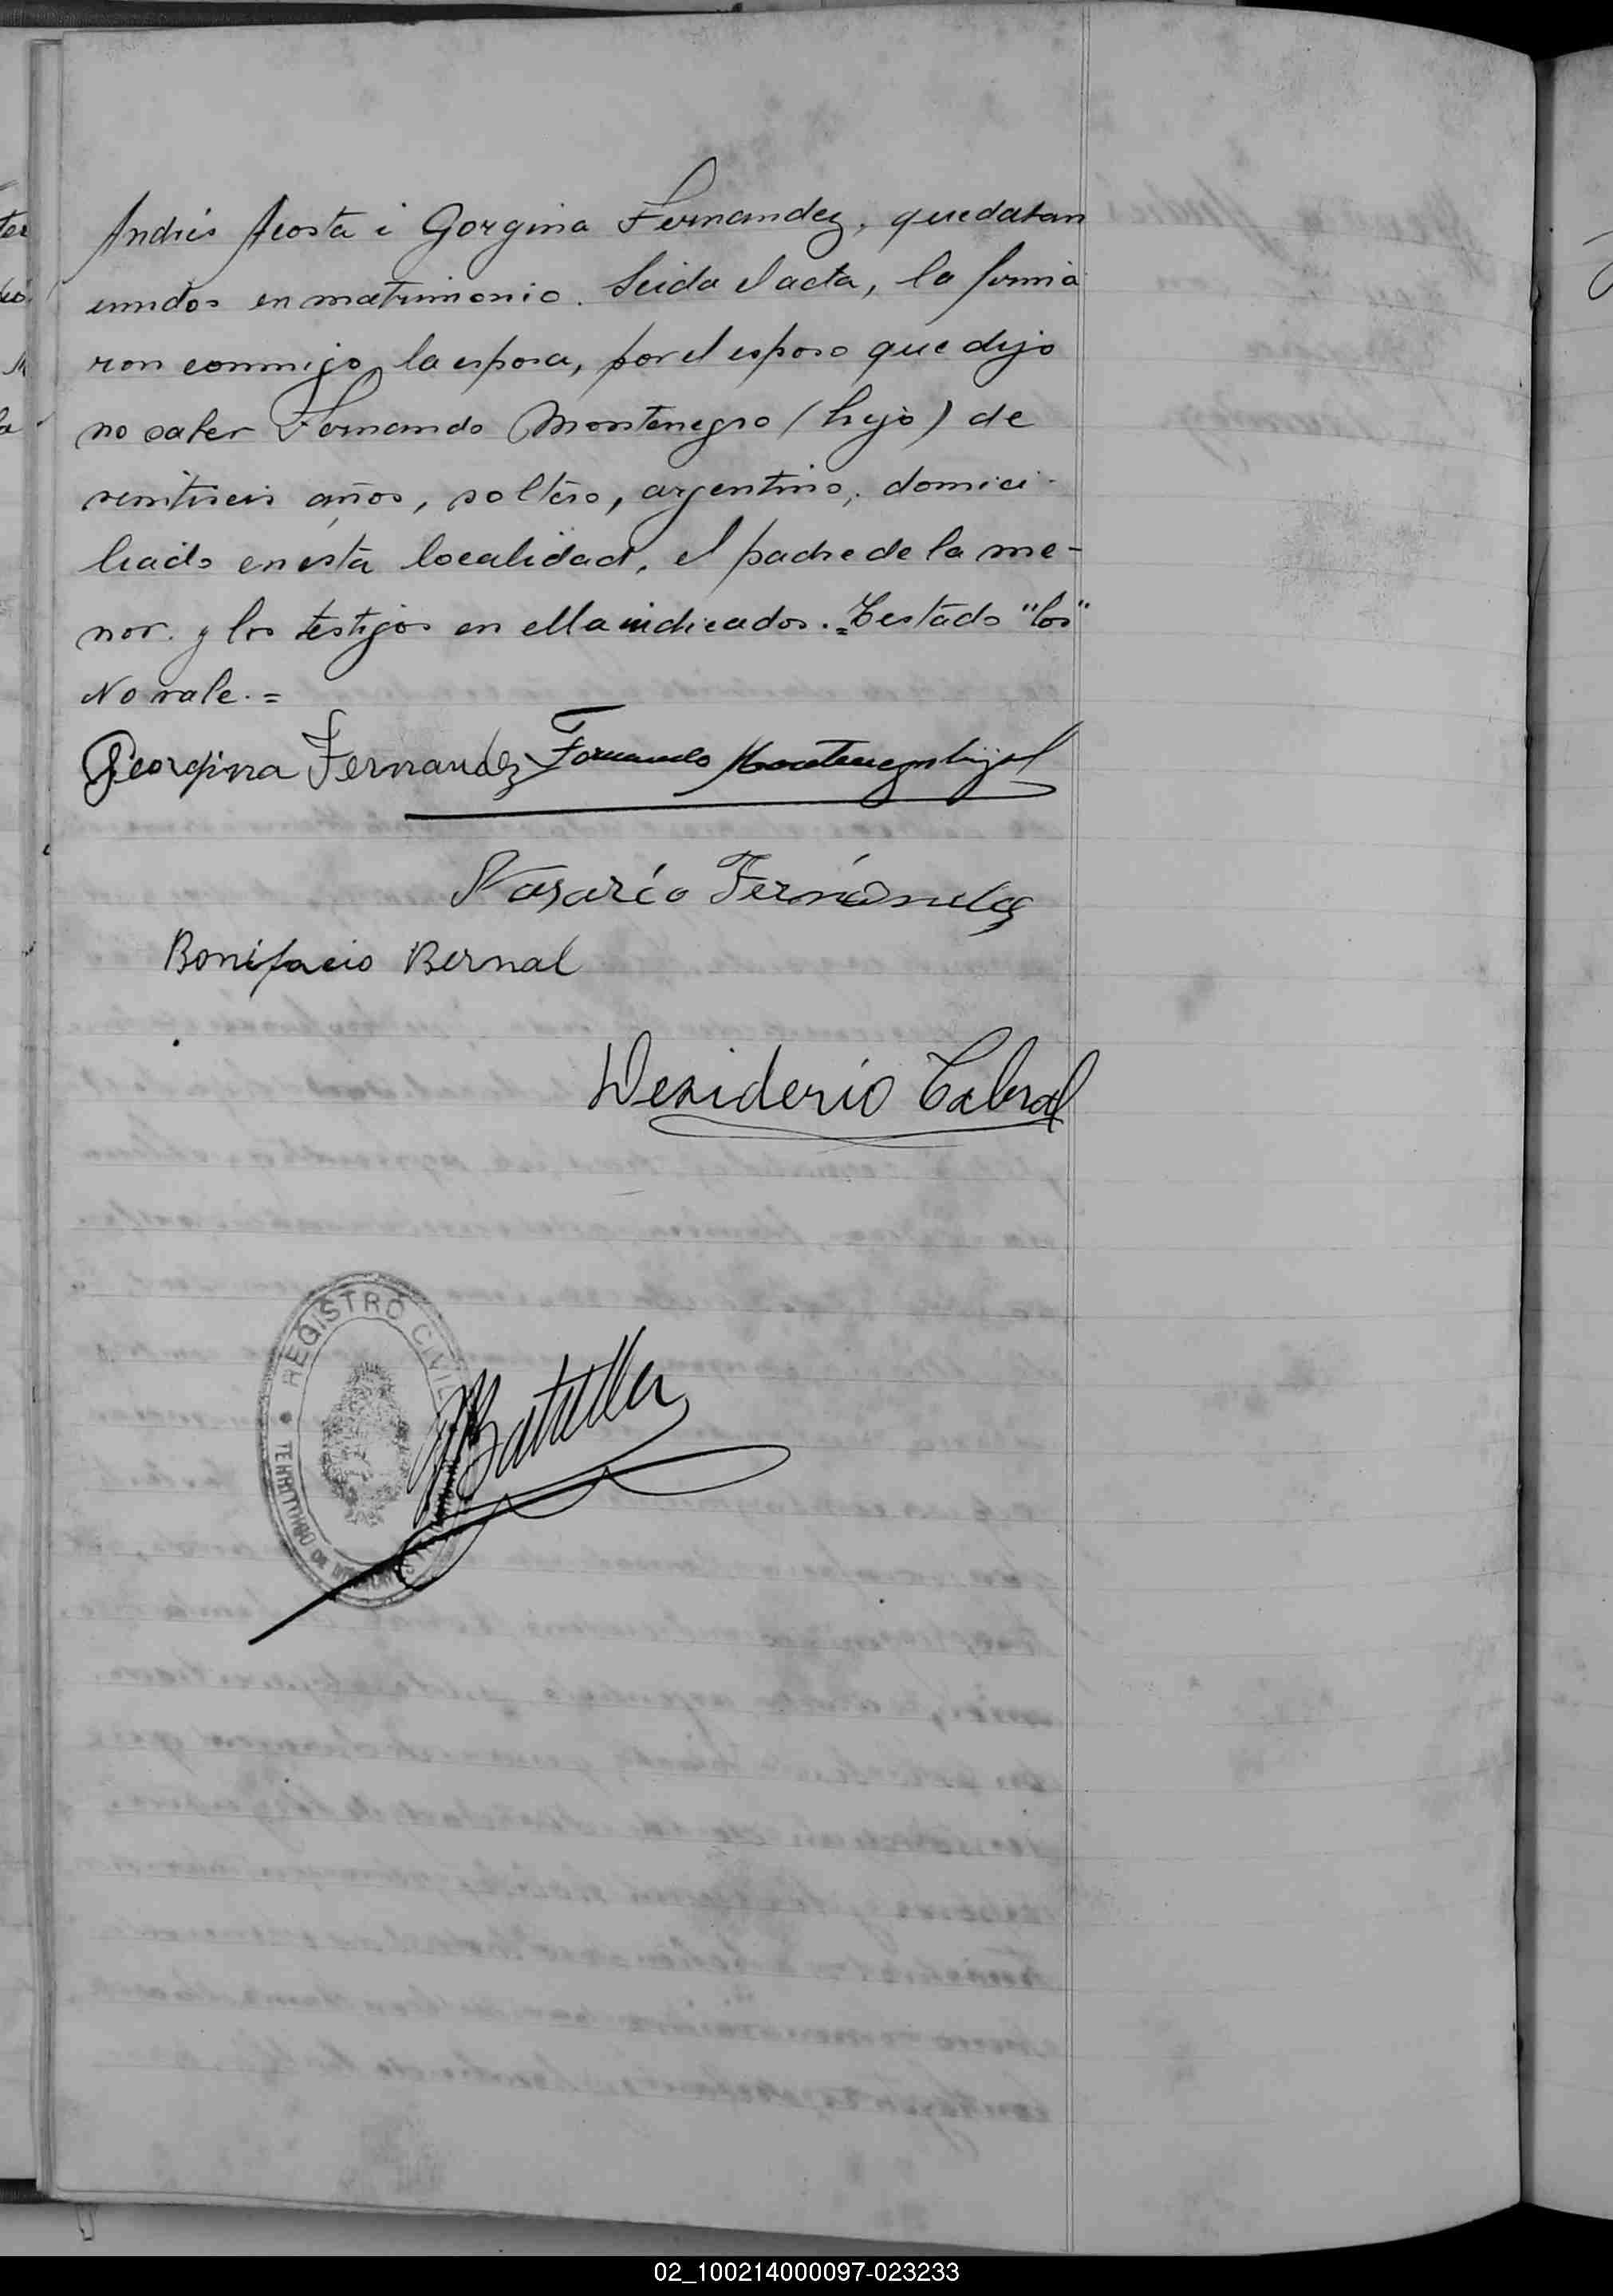 Andrés Acosta i Gorgina Fernandez, quedaban
unidos en matrimonio. Leida el acta, la firma
ron conmigo la esposa, por el esposo que dijo
no saber Fernando Montenegro (hijo) de
veintiseis años, soltero, argentino, domici-
liado en esta localidad, el padre de la me-
nor. y los testigos en ella indicados.=Testado "los"
No vale.=
Georgina Fernandez Fernando Montenegro hijo
Nasario Fernández
Bonifacio Bernal
Desiderio Cabral
REGISTRO CIVIL
TERRITORIO DE
02_100214000097-023233